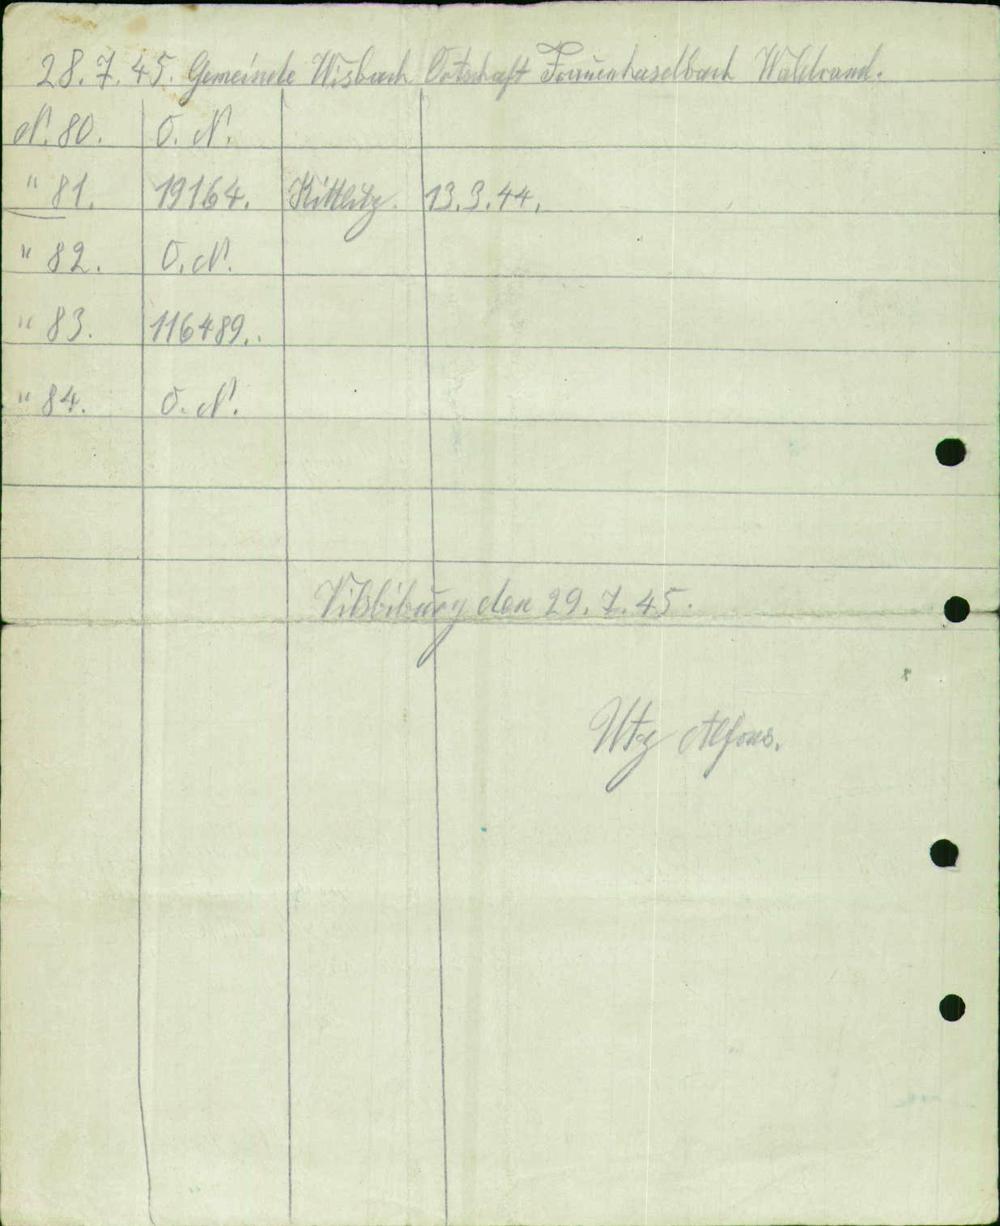 28.7.45. Gemeinde Wisbach Ortschaft Frauenhaselbach Waldrand.
N. 80. O. N.
" 81. 19164. Kittlitz. 13.3.44.
" 82. O. N.
" 83. 116489.
" 84. O. N.
Vilsbiburg den 29.7.45.
Utz Alfons.